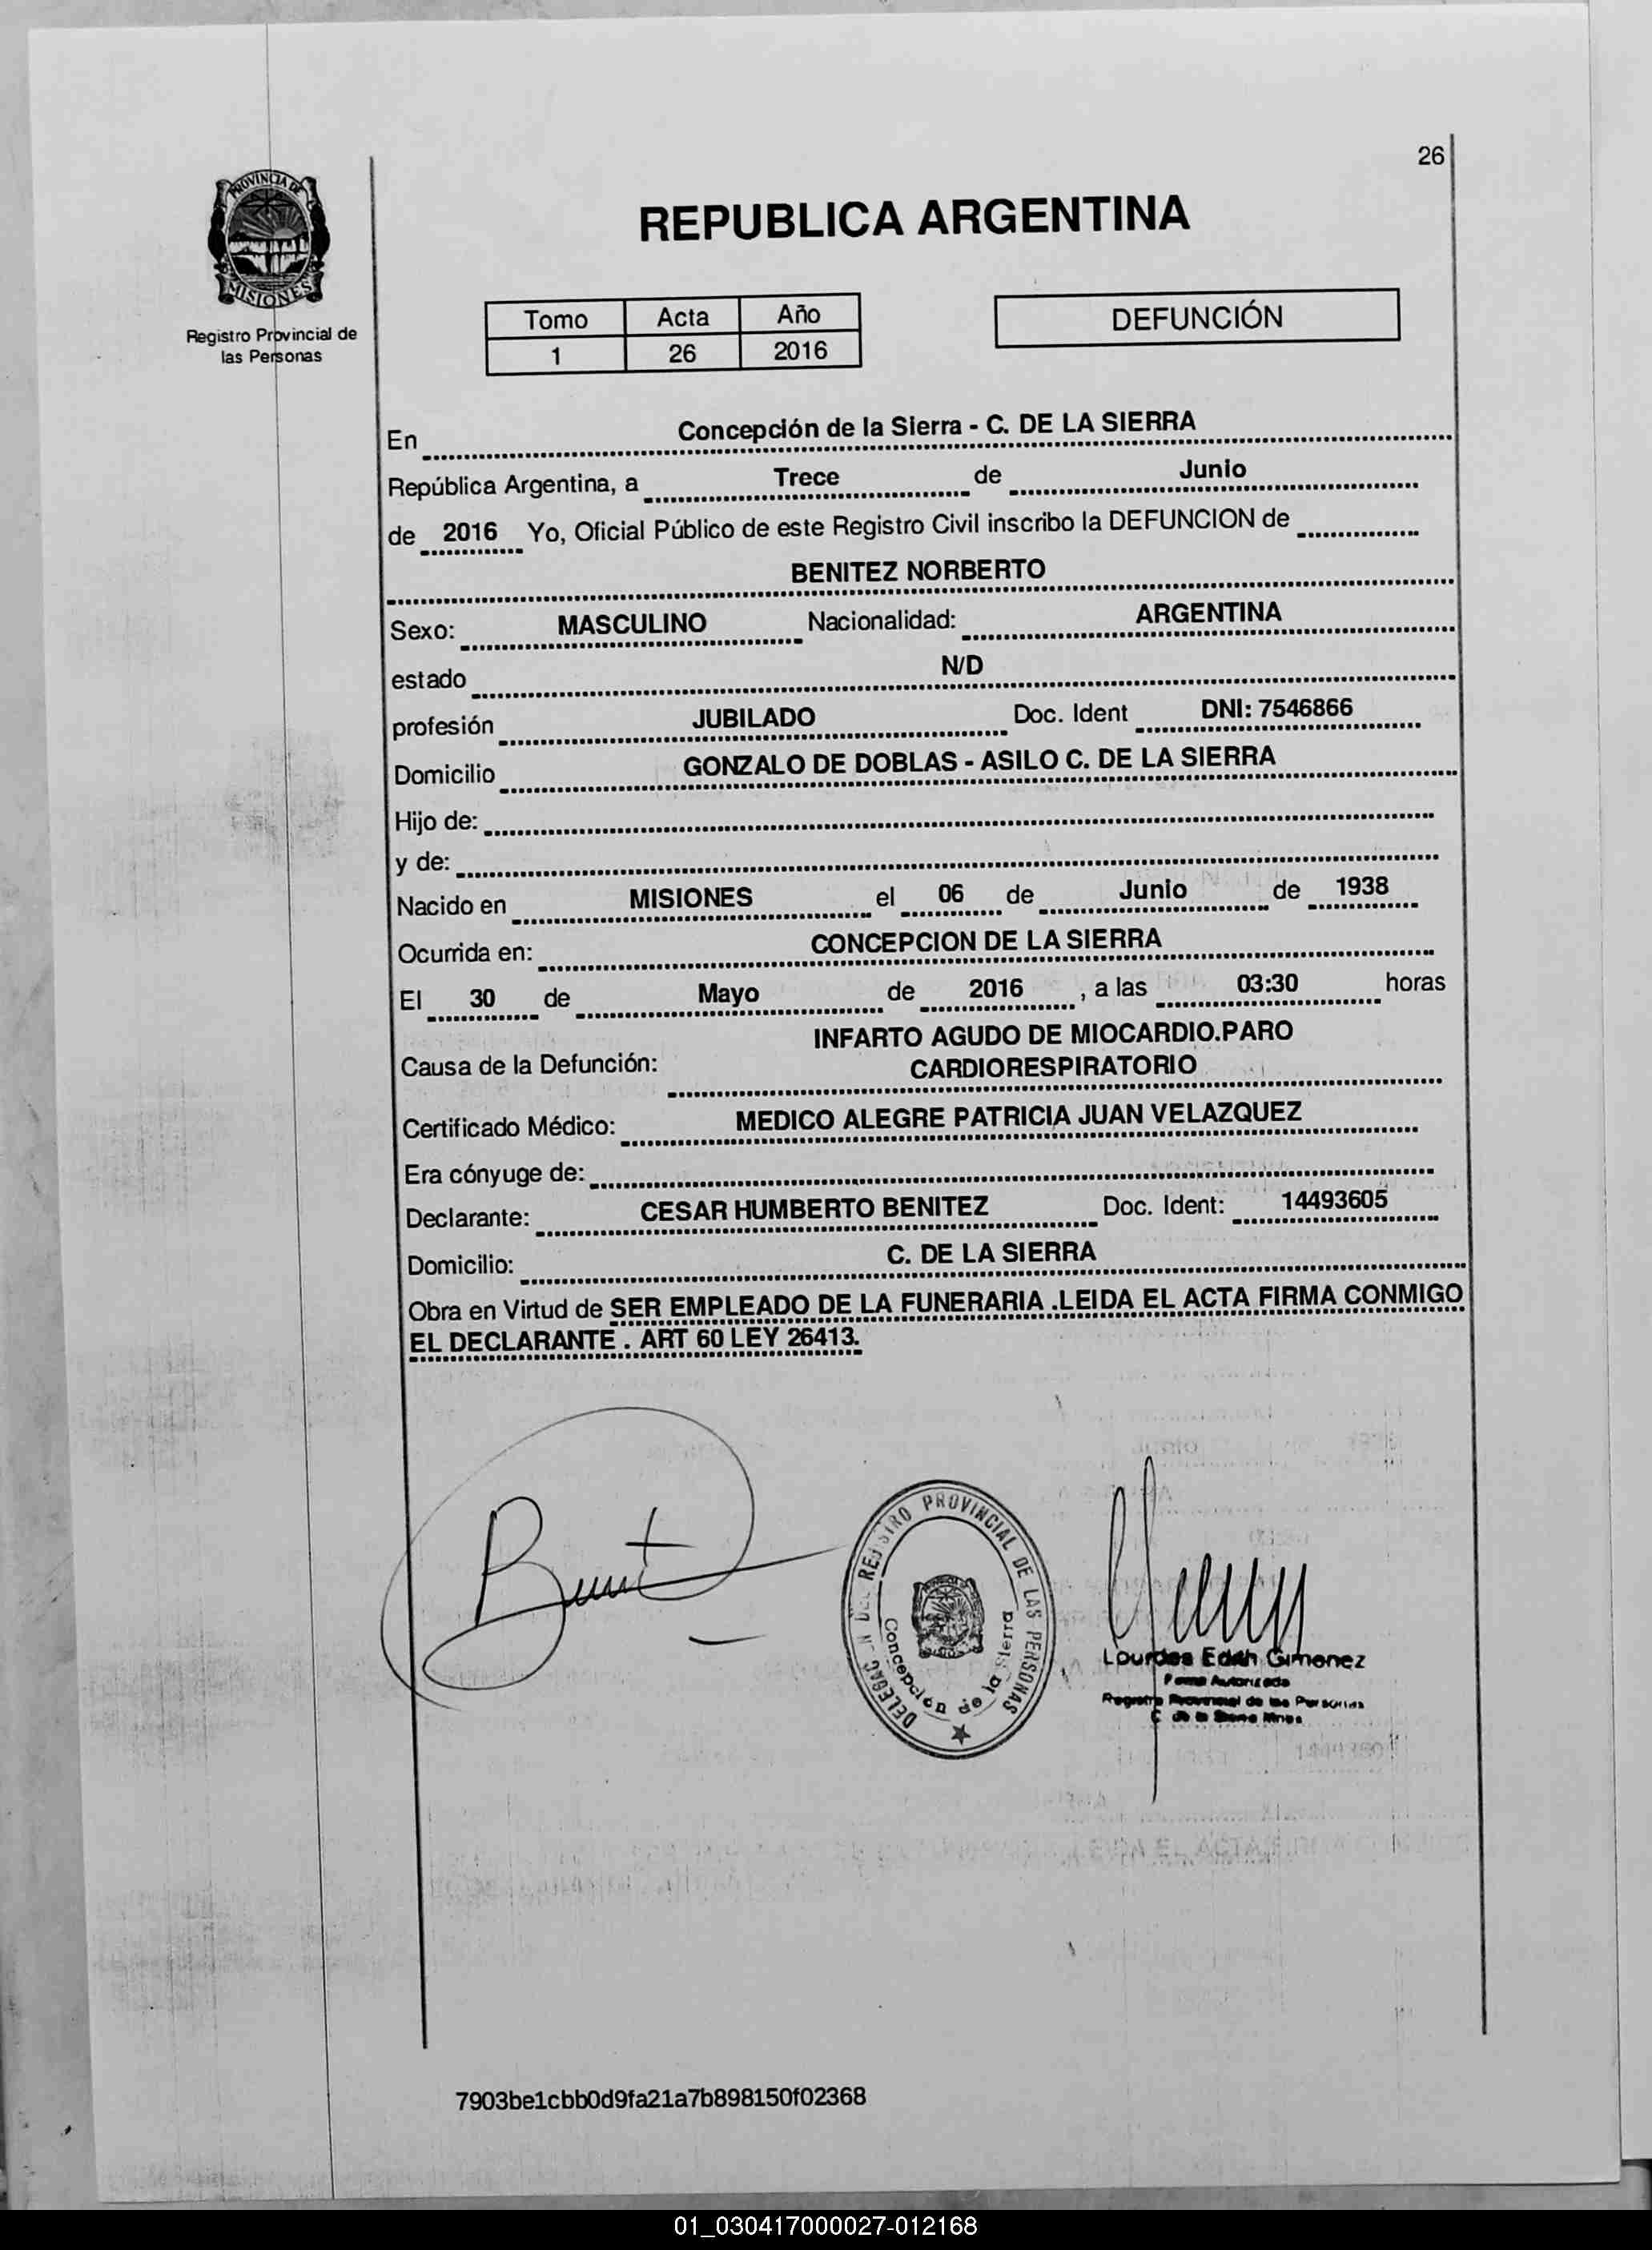 26
PROVINCIA DE
MISIONES
Registro Provincial de
las Personas
REPUBLICA ARGENTINA
Tomo Acta Año
1 26 2016
DEFUNCIÓN
En Concepción de la Sierra - C. DE LA SIERRA
República Argentina, a Trece de Junio
de 2016 Yo, Oficial Público de este Registro Civil inscribo la DEFUNCION de
BENITEZ NORBERTO
Sexo: MASCULINO Nacionalidad: ARGENTINA
estado N/D
profesión JUBILADO Doc. Ident DNI: 7546866
Domicilio GONZALO DE DOBLAS - ASILO C. DE LA SIERRA
Hijo de:
y de:
Nacido en MISIONES el 06 de Junio de 1938
Ocurrida en: CONCEPCION DE LA SIERRA
El 30 de Mayo de 2016 , a las 03:30 horas
INFARTO AGUDO DE MIOCARDIO.PARO
Causa de la Defunción: CARDIORESPIRATORIO
Certificado Médico: MEDICO ALEGRE PATRICIA JUAN VELAZQUEZ
Era cónyuge de:
Declarante: CESAR HUMBERTO BENITEZ Doc. Ident: 14493605
Domicilio: C. DE LA SIERRA
Obra en Virtud de SER EMPLEADO DE LA FUNERARIA .LEIDA EL ACTA FIRMA CONMIGO
EL DECLARANTE . ART 60 LEY 26413.
PROVINCIAL DE LAS PERSONAS
Concepción de la Sierra
Lourdes Edith Gimenez
Firma Autorizada
Registro Provincial de las Personas
C. de la Sierra Mnes.
7903be1cbb0d9fa21a7b898150f02368
01_030417000027-012168